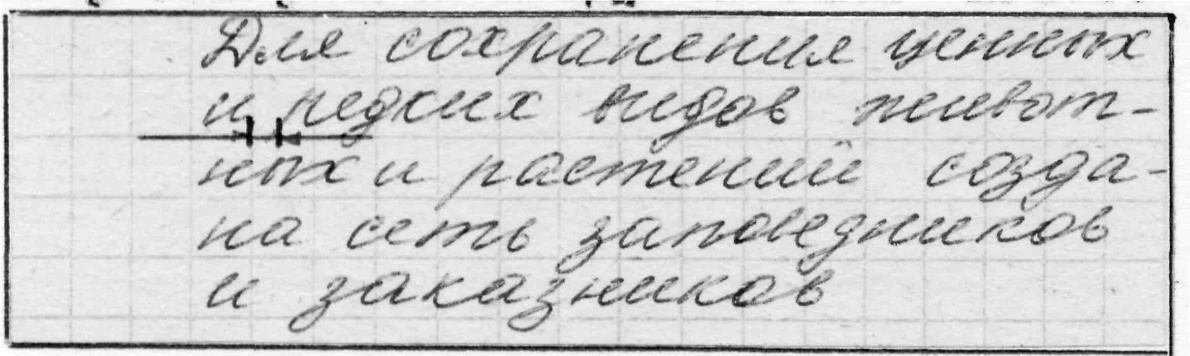 Для сохранения ценных
и редких видов живот-
ных и растений созда-
на сеть заповедников
и заказников